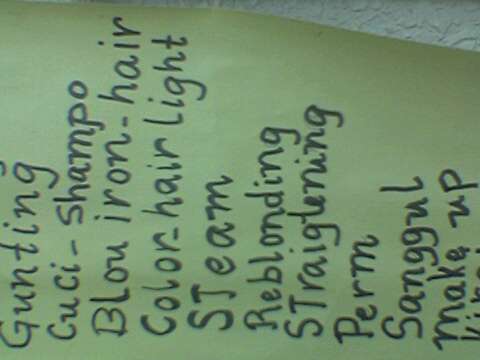 Gunting
Cuci - Shampo
Blou iron-hair
Color-hair light
STeam
Reblonding
STraigtening
Perm
Sanggul
Make up